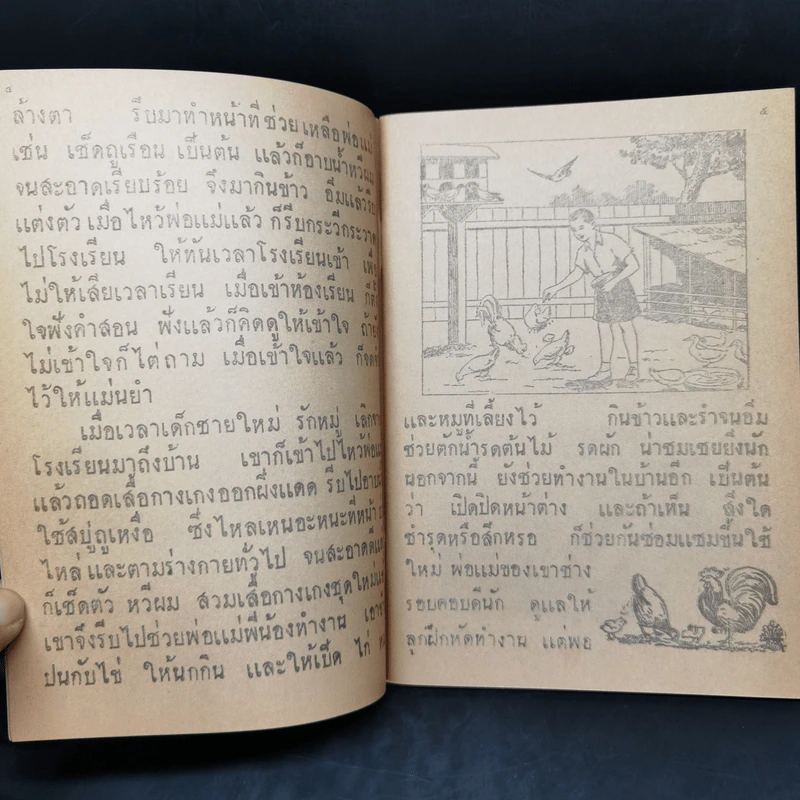 ๔
ล้างตา รีบมาทำหน้าที่ ช่วยเหลือพ่อแม่
เช่น เช็ดถูเรือน เป็นต้น แล้วก็อาบน้ำหวีผม
จนสะอาดเรียบร้อย จึงมากินข้าว อิ่มแล้วรีบ
แต่งตัว เมื่อไหว้พ่อแม่แล้ว ก็รีบกระวีกระวาด
ไปโรงเรียน ให้ทันเวลาโรงเรียนเข้า เพื่อ
ไม่ให้เสียเวลาเรียน เมื่อเข้าห้องเรียน ก็ตั้ง
ใจฟังคำสอน ฟังแล้วก็คิดดูให้เข้าใจ ถ้ายัง
ไม่เข้าใจก็ไต่ถาม เมื่อเข้าใจแล้ว ก็จดจำ
ไว้ให้แม่นยำ
เมื่อเวลาเด็กชายใหม่ รักหมู่ เลิกจาก
โรงเรียนมาถึงบ้าน เขาก็เข้าไปไหว้พ่อแม่
แล้วถอดเสื้อกางเกงออกผึ่งแดด รีบไปอาบน้ำ
ใช้สบู่ถูเหงื่อ ซึ่งไหลเหนอะหนะที่หน้า
ไหล่ และตามร่างกายทั่วไป จนสะอาดดีแล้ว
ก็เช็ดตัว หวีผม สวมเสื้อกางเกงชุดใหม่แล้ว
เขาจึงรีบไปช่วยพ่อแม่พี่น้องทำงาน เอาข้าว
ปนกับไข่ ให้นกกิน และให้เป็ด ไก่
๕
และหมูที่เลี้ยงไว้ กินข้าวและรำจนอิ่ม
ช่วยตักน้ำรดต้นไม้ รดผัก น่าชมเชยยิ่งนัก
นอกจากนี้ ยังช่วยทำงานในบ้านอีก เป็นต้น
ว่า เปิดปิดหน้าต่าง และถ้าเห็น สิ่งใด
ชำรุดหรือสึกหรอ ก็ช่วยกันซ่อมแซมขึ้นใช้
ใหม่ พ่อแม่ของเขาช่าง
รอบคอบดีนัก ดูแลให้
ลูกฝึกหัดทำงาน แต่พอ